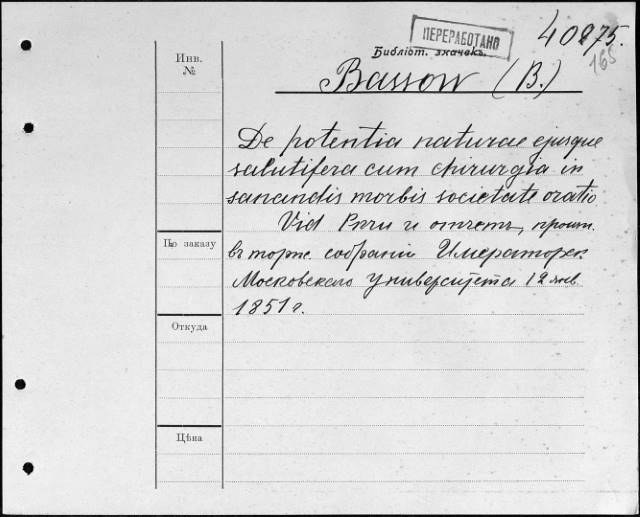 ПЕРЕРАБОТАНО
40275.
165
Библіот. значекъ.
Bassow (B.)
Инв.
№
De potentia naturae ejusque
salutifera cum chirurgia in
sanandis morbis societate oratio
Vid Рѣчи и отчетъ, произн.
въ торж. собраніи Император.
Московскаго Университета 12 янв.
1851 г.
По заказу
Откуда
Цѣна